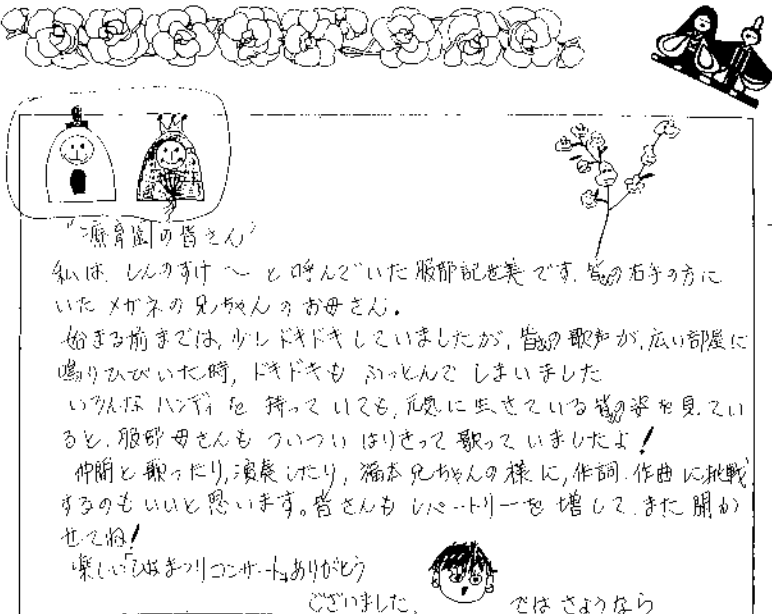 "療育園の皆さん"
私は、しんのすけ〜と呼んでいた服部記世美です。皆の右手の方に
いたメガネの兄ちゃんのお母さん。
始まる前までは、少しドキドキしていましたが、皆の歌声が、広い部屋に
鳴りひびいた時、ドキドキもふっとんでしまいました
いろんなハンディを持っていても、元気に生きている皆の姿を見てい
ると、服部母さんもついついはりきって歌っていましたよ!
仲間と歌ったり、演奏したり、福本兄ちゃんの様に、作詞・作曲に挑戦
するのもいいと思います。皆さんもレパートリーを増して、また聞か
せてね!
楽しい「ひなまつりコンサート」ありがとう
ございました。
ではさようなら